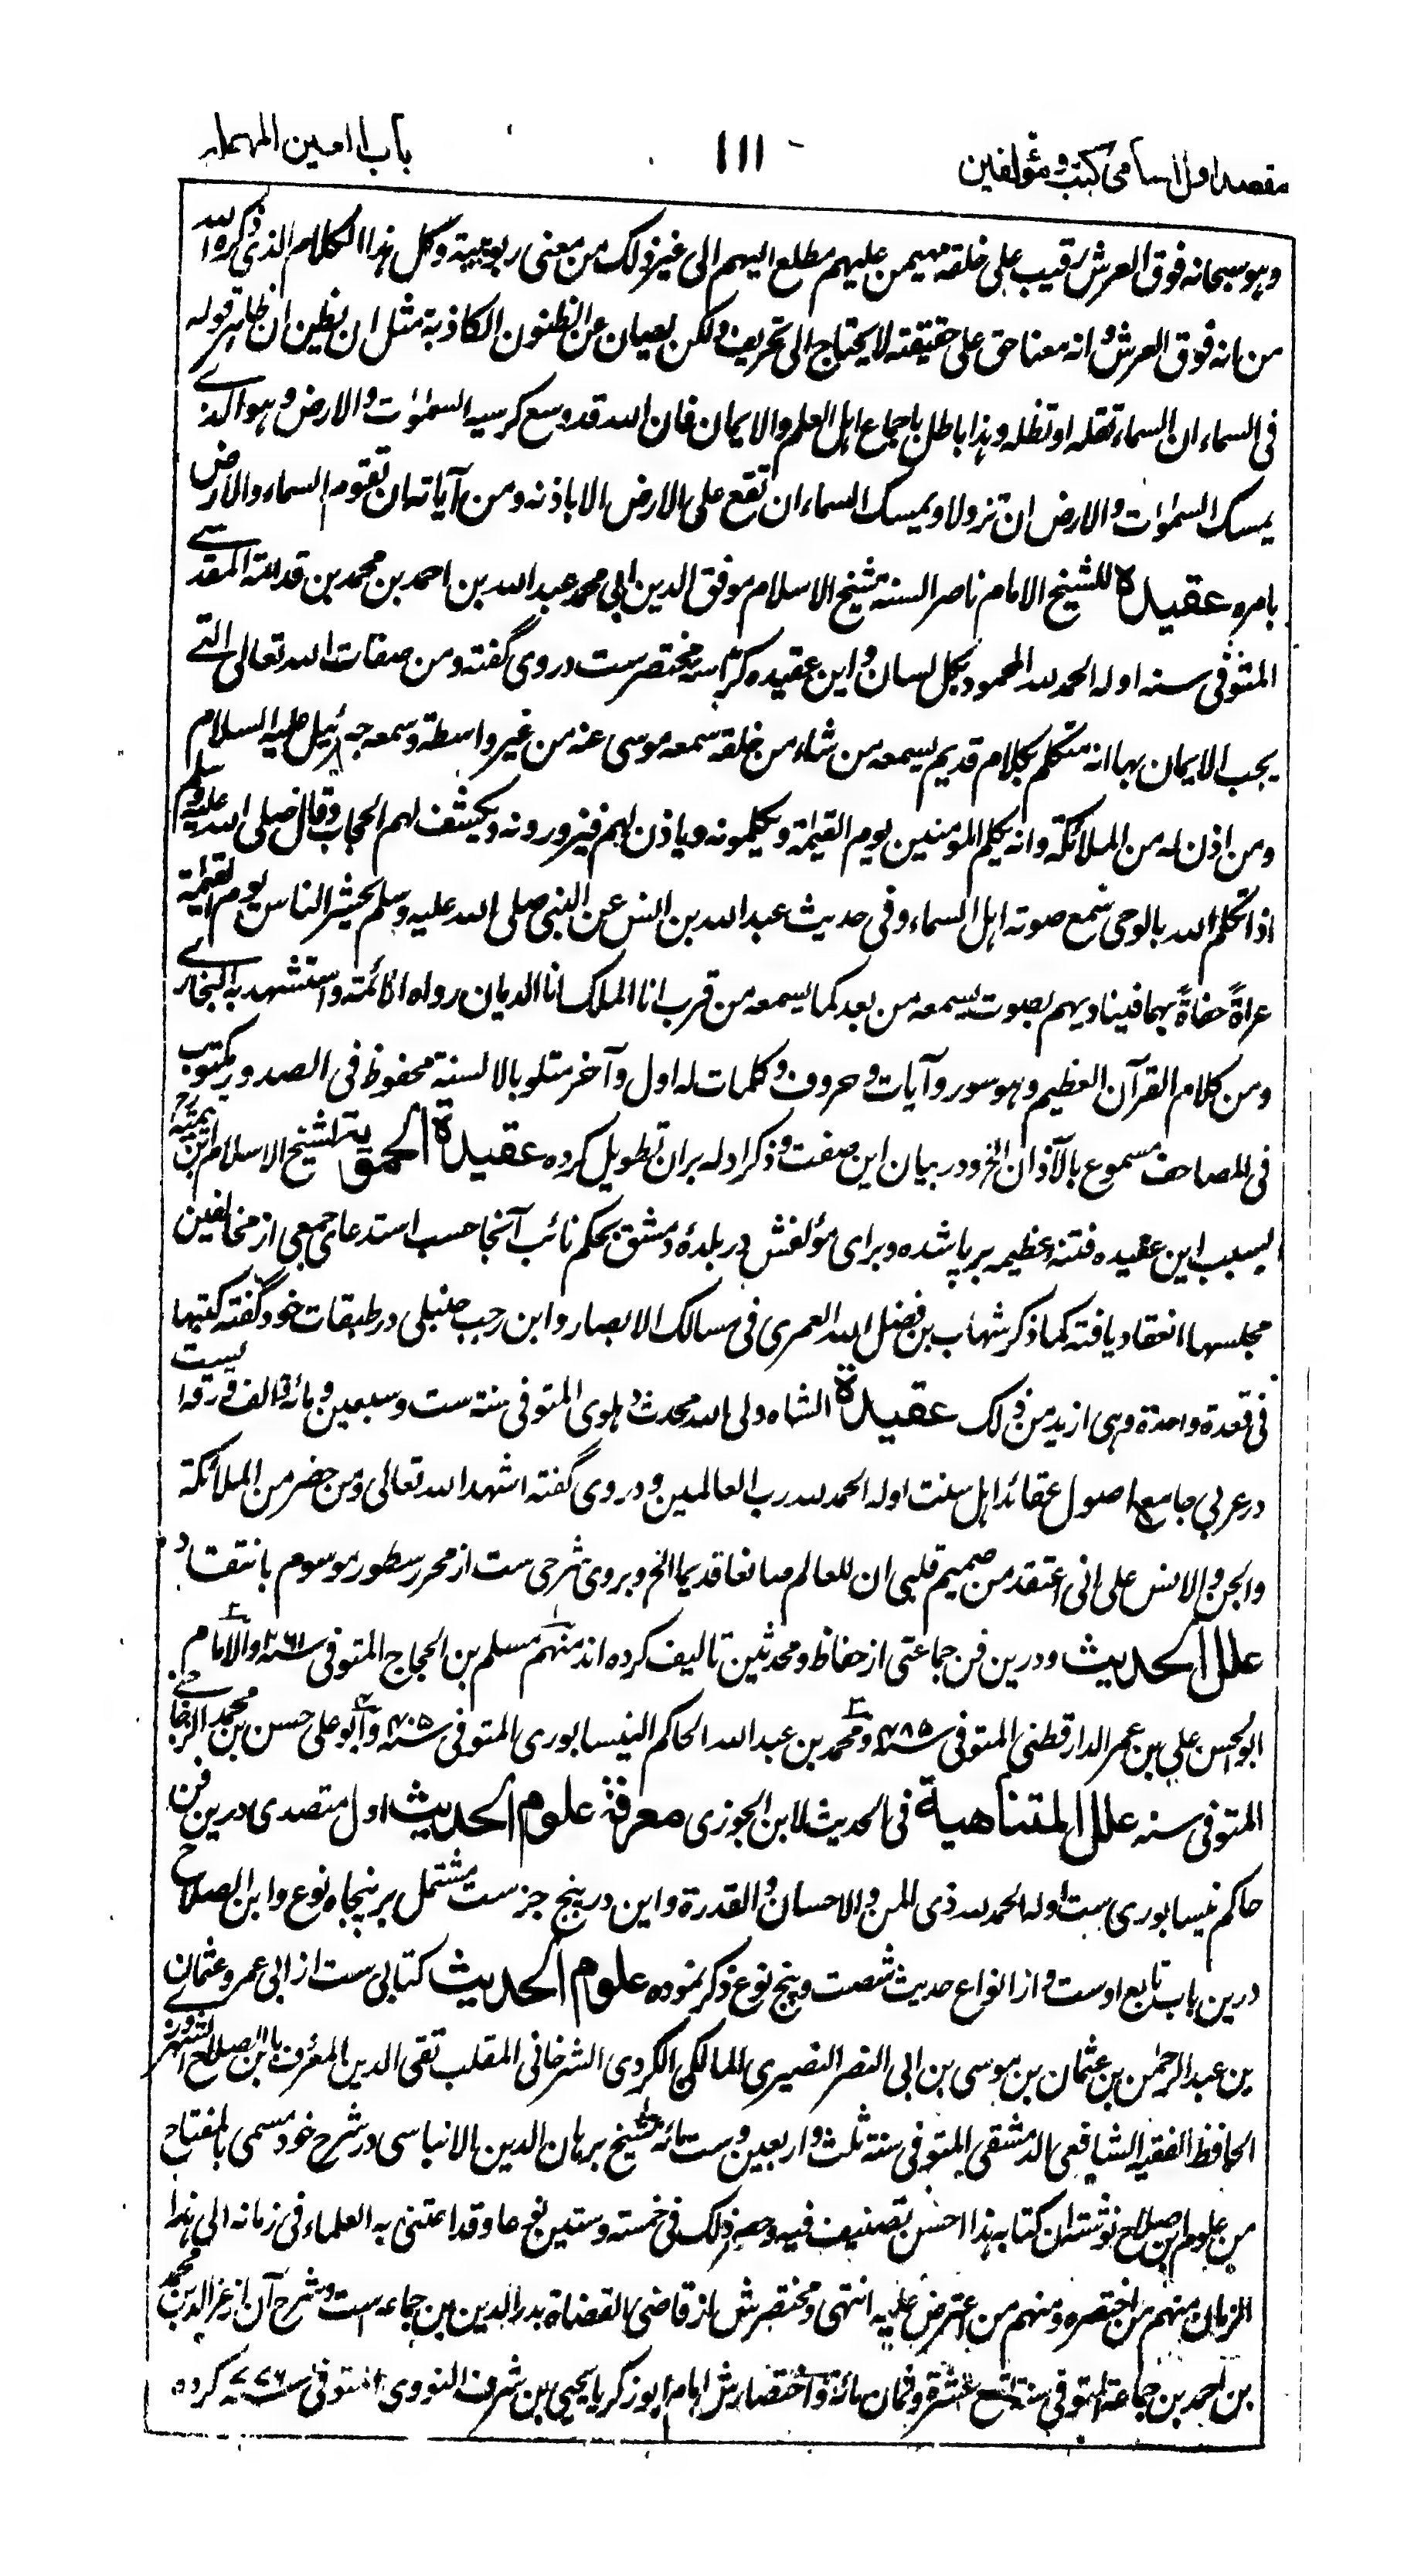 مقصد اول اسامی کتب و مؤلفین
۱۱۱
باب العین المهملہ
وہو سبحانہ فوق العرش رقیب علی خلقہ مہیمن علیہم مطلع الیہم الی غیر ذلک من معنی ربوبیتہ وکل ہذا الکلام الذی ذکرہ اللہ
من انہ فوق العرش و انہ معنا حق علی حقیقتہ لا یحتاج الی تحریف ولکن یصان عن الظنون الکاذبة مثل ان یظن ان ظاہر قولہ
فی السماء ان السماء تقلہ او تظلہ وہذا باطل باجماع اہل العلم والایمان فان اللہ قد وسع کرسیہ السموٰت والارض وہو الذے
یمسک السموٰت والارض ان تزولا ویمسک السماء ان تقع علی الارض الا باذنہ ومن آیاتہ ان تقوم السماء والارض
بامرہ عقیدة للشیخ الامام ناصر السنة شیخ الاسلام موفق الدین ابی محمد عبد اللہ بن احمد بن محمد بن قدامة المقدسے
المتوفی سنہ اولہ الحمد للہ المحمود بکل لسان و این عقیدہ کراسہ مختصرست در وی گفتہ ومن صفات اللہ تعالی التے
یجب الایمان بہا انہ متکلم بکلام قدیم یسمعہ من شاء من خلقہ سمعہ موسی عنہ من غیر واسطة وسمعہ جبرئیل علیہ السلام
ومن اذن لہ من الملائکة وانہ یکلم المؤمنین یوم القیٰمة ویکلمونہ ویاذن لہم فیزورونہ ویکشف لہم الحجاب وقال صلی اللہ علیہ وسلم
اذا تکلم اللہ بالوحی سمع صوتہ اہل السماء وفی حدیث عبد اللہ بن انس عن النبی صلی اللہ علیہ وسلم یحشر الناس یوم القیٰمة
عراةً حفاةً بہما فینادیہم بصوت یسمعہ من بعد کما یسمعہ من قرب انا الملک انا الدیان رواہ الائمة واستشہد بہ البخارے
ومن کلام القرآن العظیم وہو سور وآیات و حروف و کلمات لہ اول وآخر متلو بالالسنة محفوظ فی الصدور مکتوب
فی المصاحف مسموع بالآذان الخ ودر بیان این صفت و ذکر ادلہ بران تطویل کردہ عقیدة الحمویة لشیخ الاسلام ابن تیمیة رح
بسبب این عقیدہ فتنہ عظیمہ برپا شدہ وبرای مؤلفش در بلدۂ دمشق بحکم نائب آنجا حسب استدعای جمعی از مخالفین
مجلسہا انعقاد یافتہ کما ذکر شہاب بن فضل اللہ العمری فی مسالک الابصار وابن رجب حنبلی در طبقات خود گفتہ کتبہا
فی قعدة واحدة وہی ازید من ذلک عقیدة الشاہ ولی اللہ محدث دہلوی المتوفی سنة ست وسبعین ومائة والف
در عربی جامع اصول عقائد اہل سنت اولہ الحمد للہ رب العالمین و در وی گفتہ اشہد اللہ تعالی ومن حضر من الملائکة
والجن والانس علی انی اعتقد من صمیم قلبی ان للعالم صانعا قدیما الخ و بروی شرحی ست از محرر سطور موسوم بانتقاد
علل الحدیث ودرین فن جماعتی از حفاظ ومحدثین تالیف کردہ اند منہم مسلم بن الحجاج المتوفی سنہ ۲۶۱ والامام
ابو الحسن علی بن عمر الدارقطنی المتوفی سنہ ۳۸۵ و محمد بن عبد اللہ الحاکم النیسابوری المتوفی سنہ ۴۰۵ وابو علی حسن بن محمد
المتوفی سنہ علل المتناهیة فی الحدیث لابن الجوزی معرفة علوم الحدیث اول متصدی درین فن
حاکم نیسابوری ست اولہ الحمد للہ ذی المن والاحسان والقدرة واین در پنج جزست مشتمل بر پنجاہ نوع وابن الصلاح
درین باب تابع اوست و از انواع حدیث شصت وپنج نوع ذکر نمودہ علوم الحدیث کتابی ست از ابی عمرو عثمان
بن عبد الرحمٰن بن عثمان بن موسی بن ابی النصر النصیری المالکی الکردی الشرخانی المقلب تقی الدین المعروف بابن الصلاح الشہرزورے
الحافظ الفقیہ الشافعی الدمشقی المتوفی سنة ثلث و اربعین وستمائة شیخ برہان الدین الانباسی در شرح خود مسمی بالمفتاح
من علوم ابن صلاح نوشتہ ان کتابہ ہذا احسن تصنیف فیہ وحصر ذلک فی خمسة وستین نوعا وقد اعتنی بہ العلماء فی زمانہ الی ہذا
الزمان منہم من اختصرہ ومنہم من اعترض علیہ انتہی ومختصرش از قاضی القضاة بدر الدین بن جماعہ است و شرح آن از عز الدین محمد
بن احمد بن جماعة المتوفی سنة تسع عشرة وثمان مائة واختصارش امام ابو زکریا یحیی بن شرف النووی المتوفی سنہ ۶۷۶ کردہ